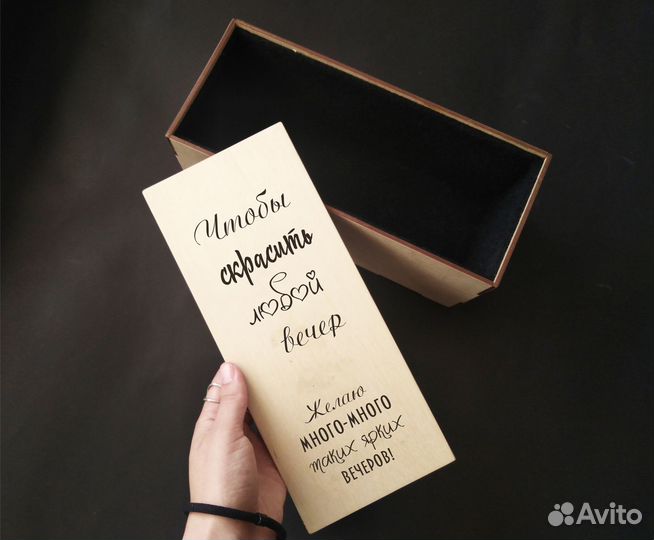 Чтобы
скрасить
любой
вечер
Желаю
МНОГО-МНОГО
таких ярких
ВЕЧЕРОВ!
Avito